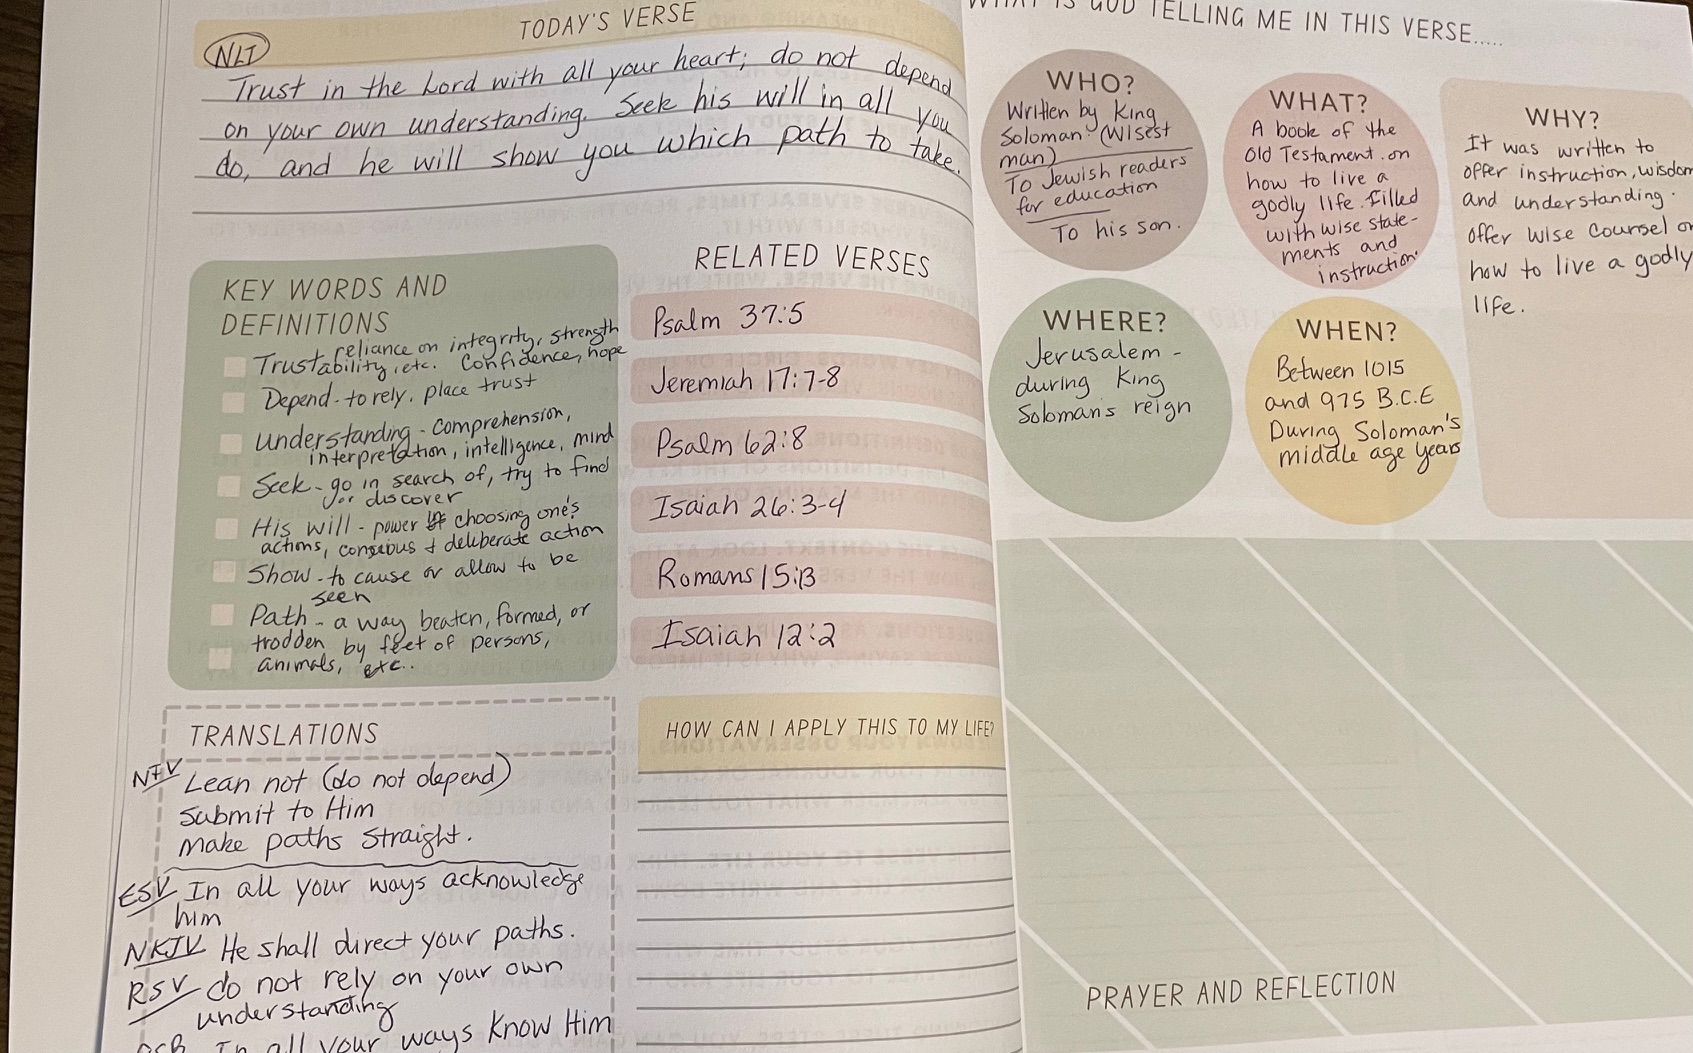 TODAY'S VERSE
NLT
Trust in the Lord with all your heart; do not depend
on your own understanding. Seek his will in all you
do, and he will show you which path to take.
KEY WORDS AND
DEFINITIONS
Trust reliance on integrity, strength
ability, etc. Confidence, hope
Depend - to rely, place trust
Understanding - comprehension,
interpretation, intelligence, mind
Seek - go in search of, try to find
or discover
His will - power of choosing one's
actions, conscious & deliberate action
Show - to cause or allow to be
seen
Path - a way beaten, formed, or
trodden by feet of persons,
animals, etc..
RELATED VERSES
Psalm 37:5
Jeremiah 17:7-8
Psalm 62:8
Isaiah 26:3-4
Romans 15:13
Isaiah 12:2
TRANSLATIONS
NIV Lean not (do not depend)
Submit to Him
Make paths straight.
ESV In all your ways acknowledge
him
NKJV He shall direct your paths.
RSV do not rely on your own
understanding
In all your ways know Him
HOW CAN I APPLY THIS TO MY LIFE?
WHAT IS GOD TELLING ME IN THIS VERSE.....
WHO?
Written by King
Soloman (Wisest
man)
To Jewish readers
for education
To his son.
WHAT?
A book of the
Old Testament. on
how to live a
godly life. Filled
with wise state-
ments and
instruction.
WHY?
It was written to
offer instruction, wisdom
and understanding.
offer wise counsel on
how to live a godly
life.
WHERE?
Jerusalem -
during King
Soloman's reign
WHEN?
Between 1015
and 975 B.C.E
During Soloman's
middle age years
PRAYER AND REFLECTION